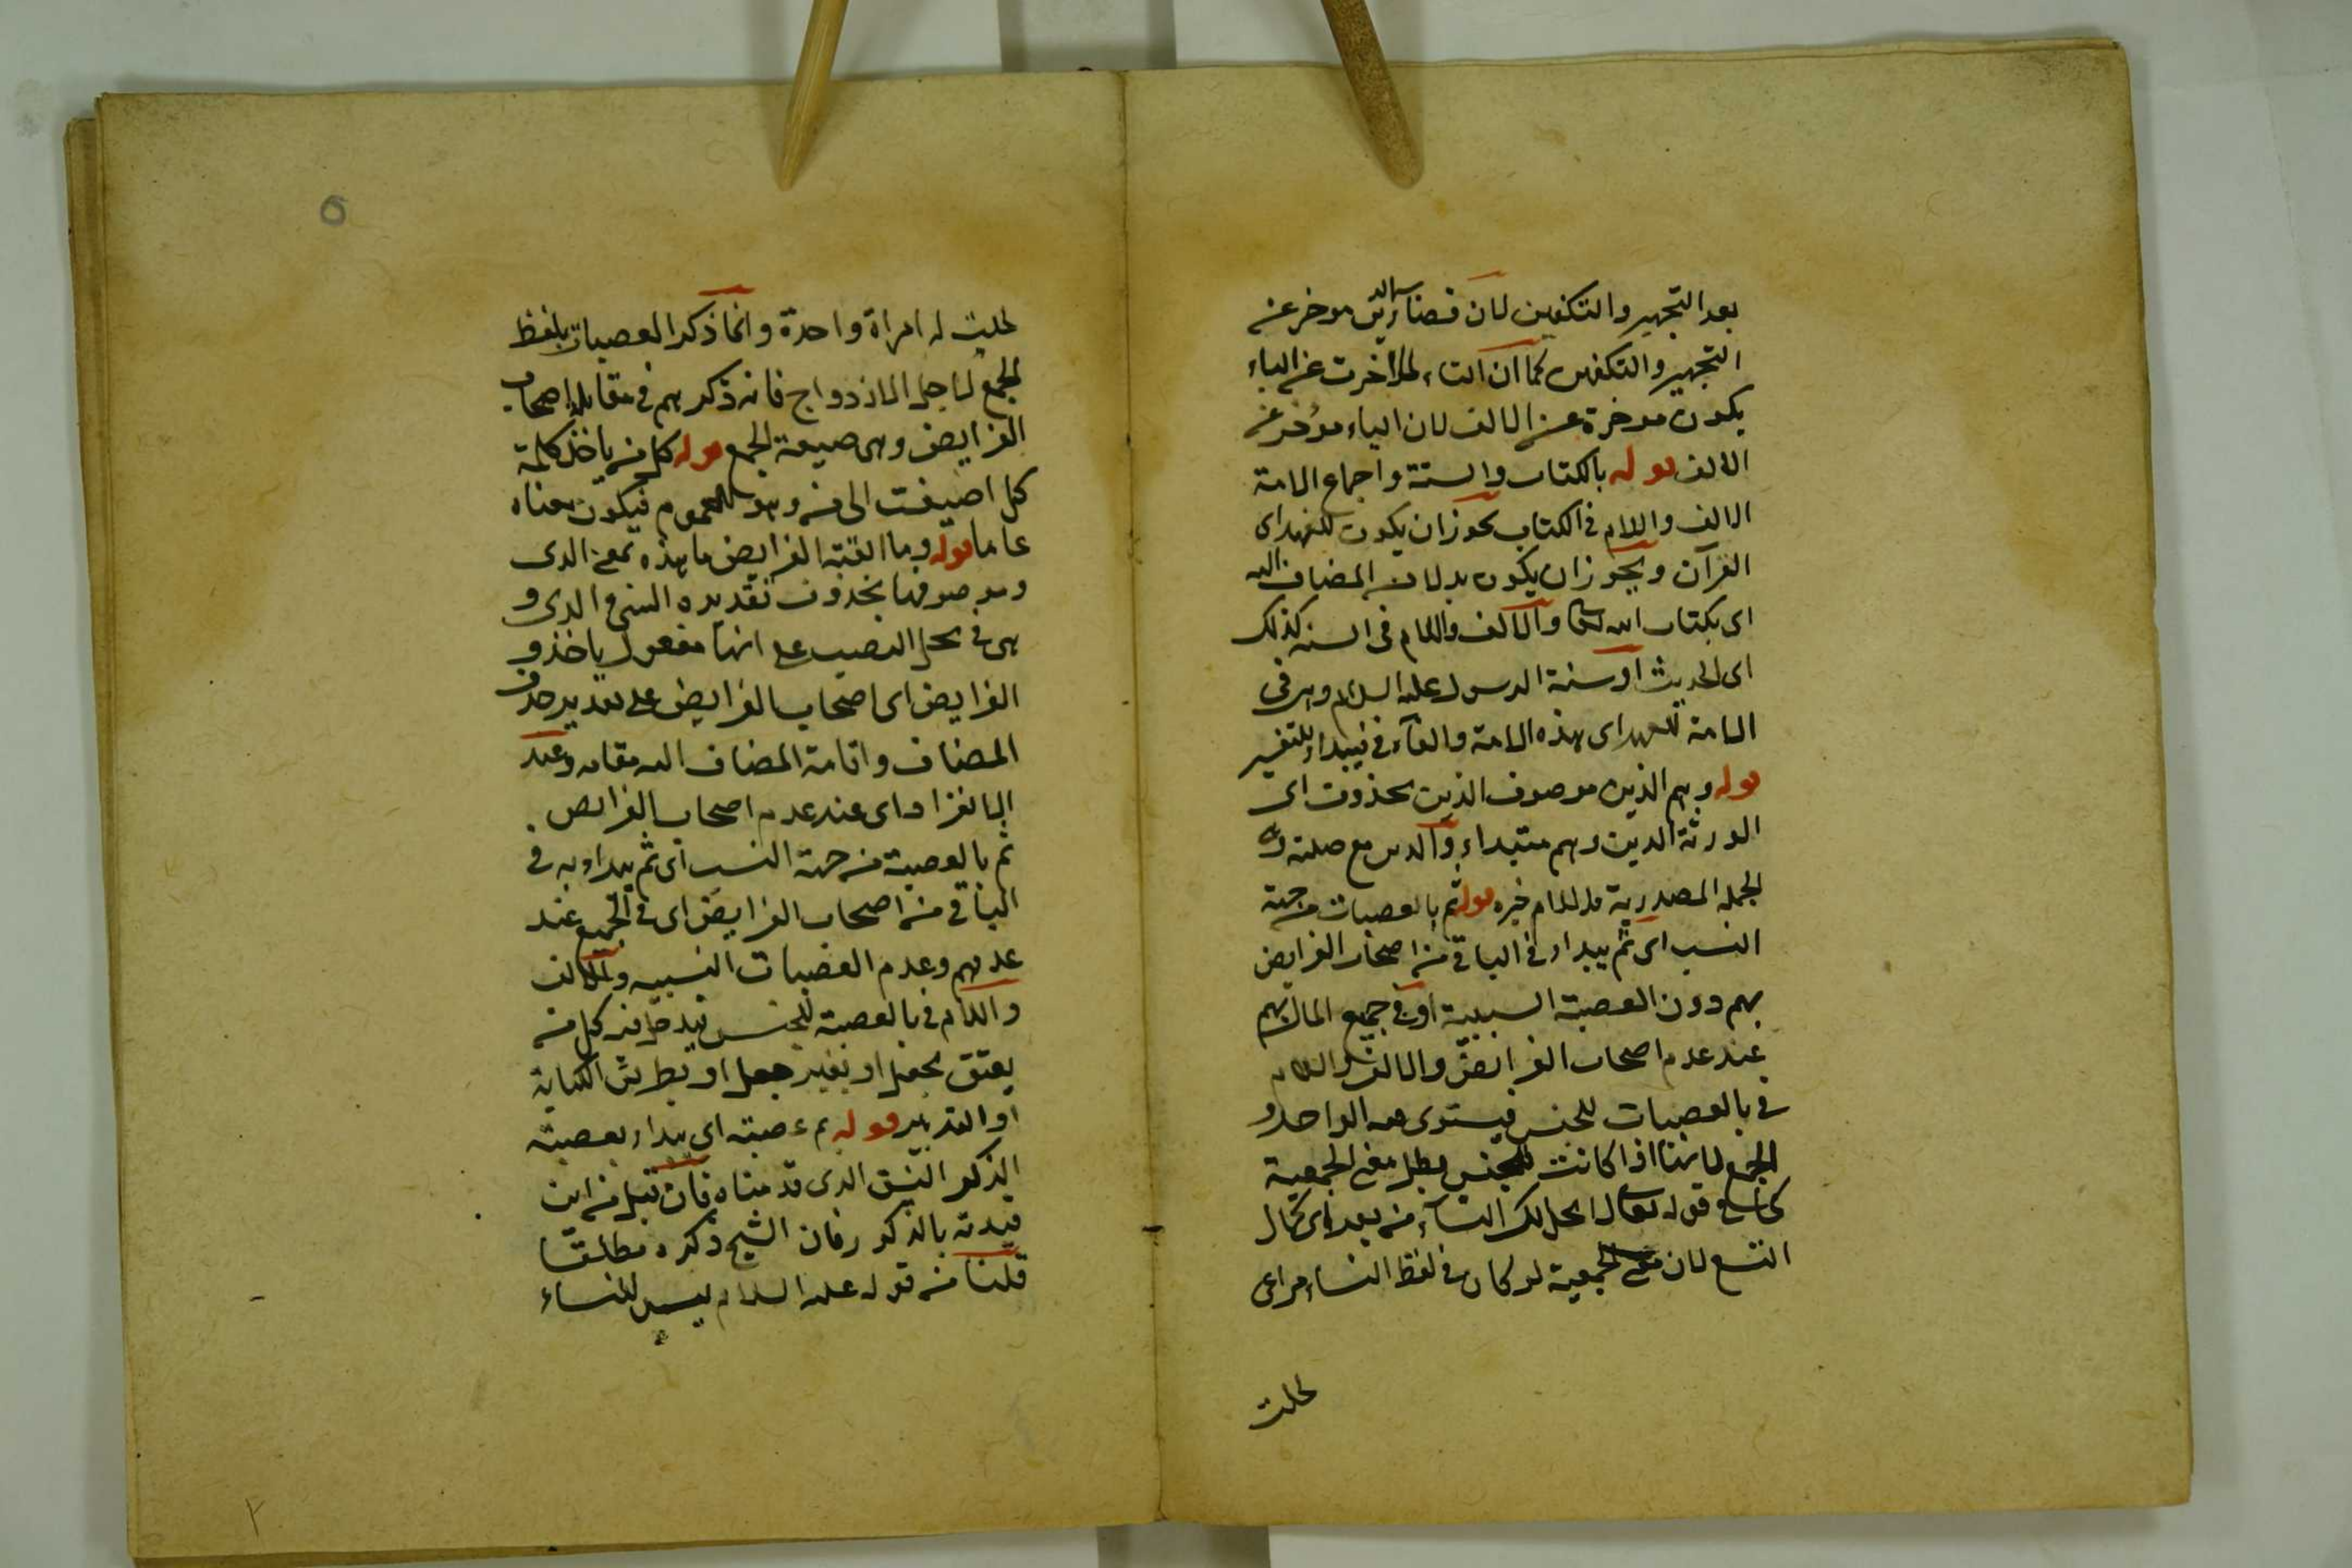 بعد التجهيز والتكفين لان قضاء الدين موخر عن
التجهيز والتكفين كما ان التاء لما اخرت عن الباء
يكون موخرة عن الالف لان الباء موخر عن
الالف قوله بالكتاب والسنة واجماع الامة
الالف واللام في الكتاب يجوز ان يكون للعهد اى
القرآن ويجوز ان يكون بدلا من المضاف اليه
اى بكتاب الله تعالى والالف واللام فى السنه كذلك
اى الحديث او سنة الرسول عليه السلام وهى فى
الامة للعهد اى هذه الامة والفاء في فيبداء للتفسير
قوله وهم الذين موصوف الذين محذوف اى
الورثة الذين وهم مبتداء والذين مع صلته و
الجملة المصدرية باللام خبره قوله ثم بالعصبات من جهة
النسب اى ثم يبداء فى الباقى من اصحاب الفرايض
بهم دون العصبة السببية او فى جميع المال بهم
عند عدم اصحاب الفرايض والالف واللام
فى بالعصبات للجنس فيستوى فيه الواحد و
الجمع لانها اذا كانت للجنس يبطل معنى الجمعية
كما فى قوله تعالى لا يحل لك النساء من بعد اى كمال
التسع لان معنى الجمعية لو كان فى لفظ النساء مراعى
لحلت
٥
لحلت له امراة واحدة وانما ذكر العصبات بلفظ
الجمع لاجل الازدواج فانه ذكرهم فى مقابلة اصحاب
الفرايض وهى صيغة الجمع قوله كل من ياخذ كلمة
كل اضيفت الى من وهو للعموم فيكون معناه
عاما قوله وما ابقته الفرايض ما هذه بمعنى الذى
وموصوفها محذوف تقديره الشى الذى و
هى فى محل النصب على انها مفعول ياخذ و
الفرايض اى اصحاب الفرايض على تقدير حذف
المضاف واقامة المضاف اليه مقامه وعند
الانفراد اى عند عدم اصحاب الفرايض
ثم بالعصبة من جهة السبب اى ثم يبداء به فى
الباقى من اصحاب الفرايض اى فى الجميع عند
عدمهم وعدم العصبات النسبيه والالف
واللام فى بالعصبة للجنس فيدخل فيه كل من
يعتق بجعل او بغير جعل او بطريق الكتابة
او التدبير قوله ثم عصبته اى يبداء بعصبته
الذكور النسق الذى قدمناه فان قيل من اين
قيدته بالذكور فان الشيخ ذكره مطلقا
قلنا من قوله عليه السلام ليس للنساء
٢